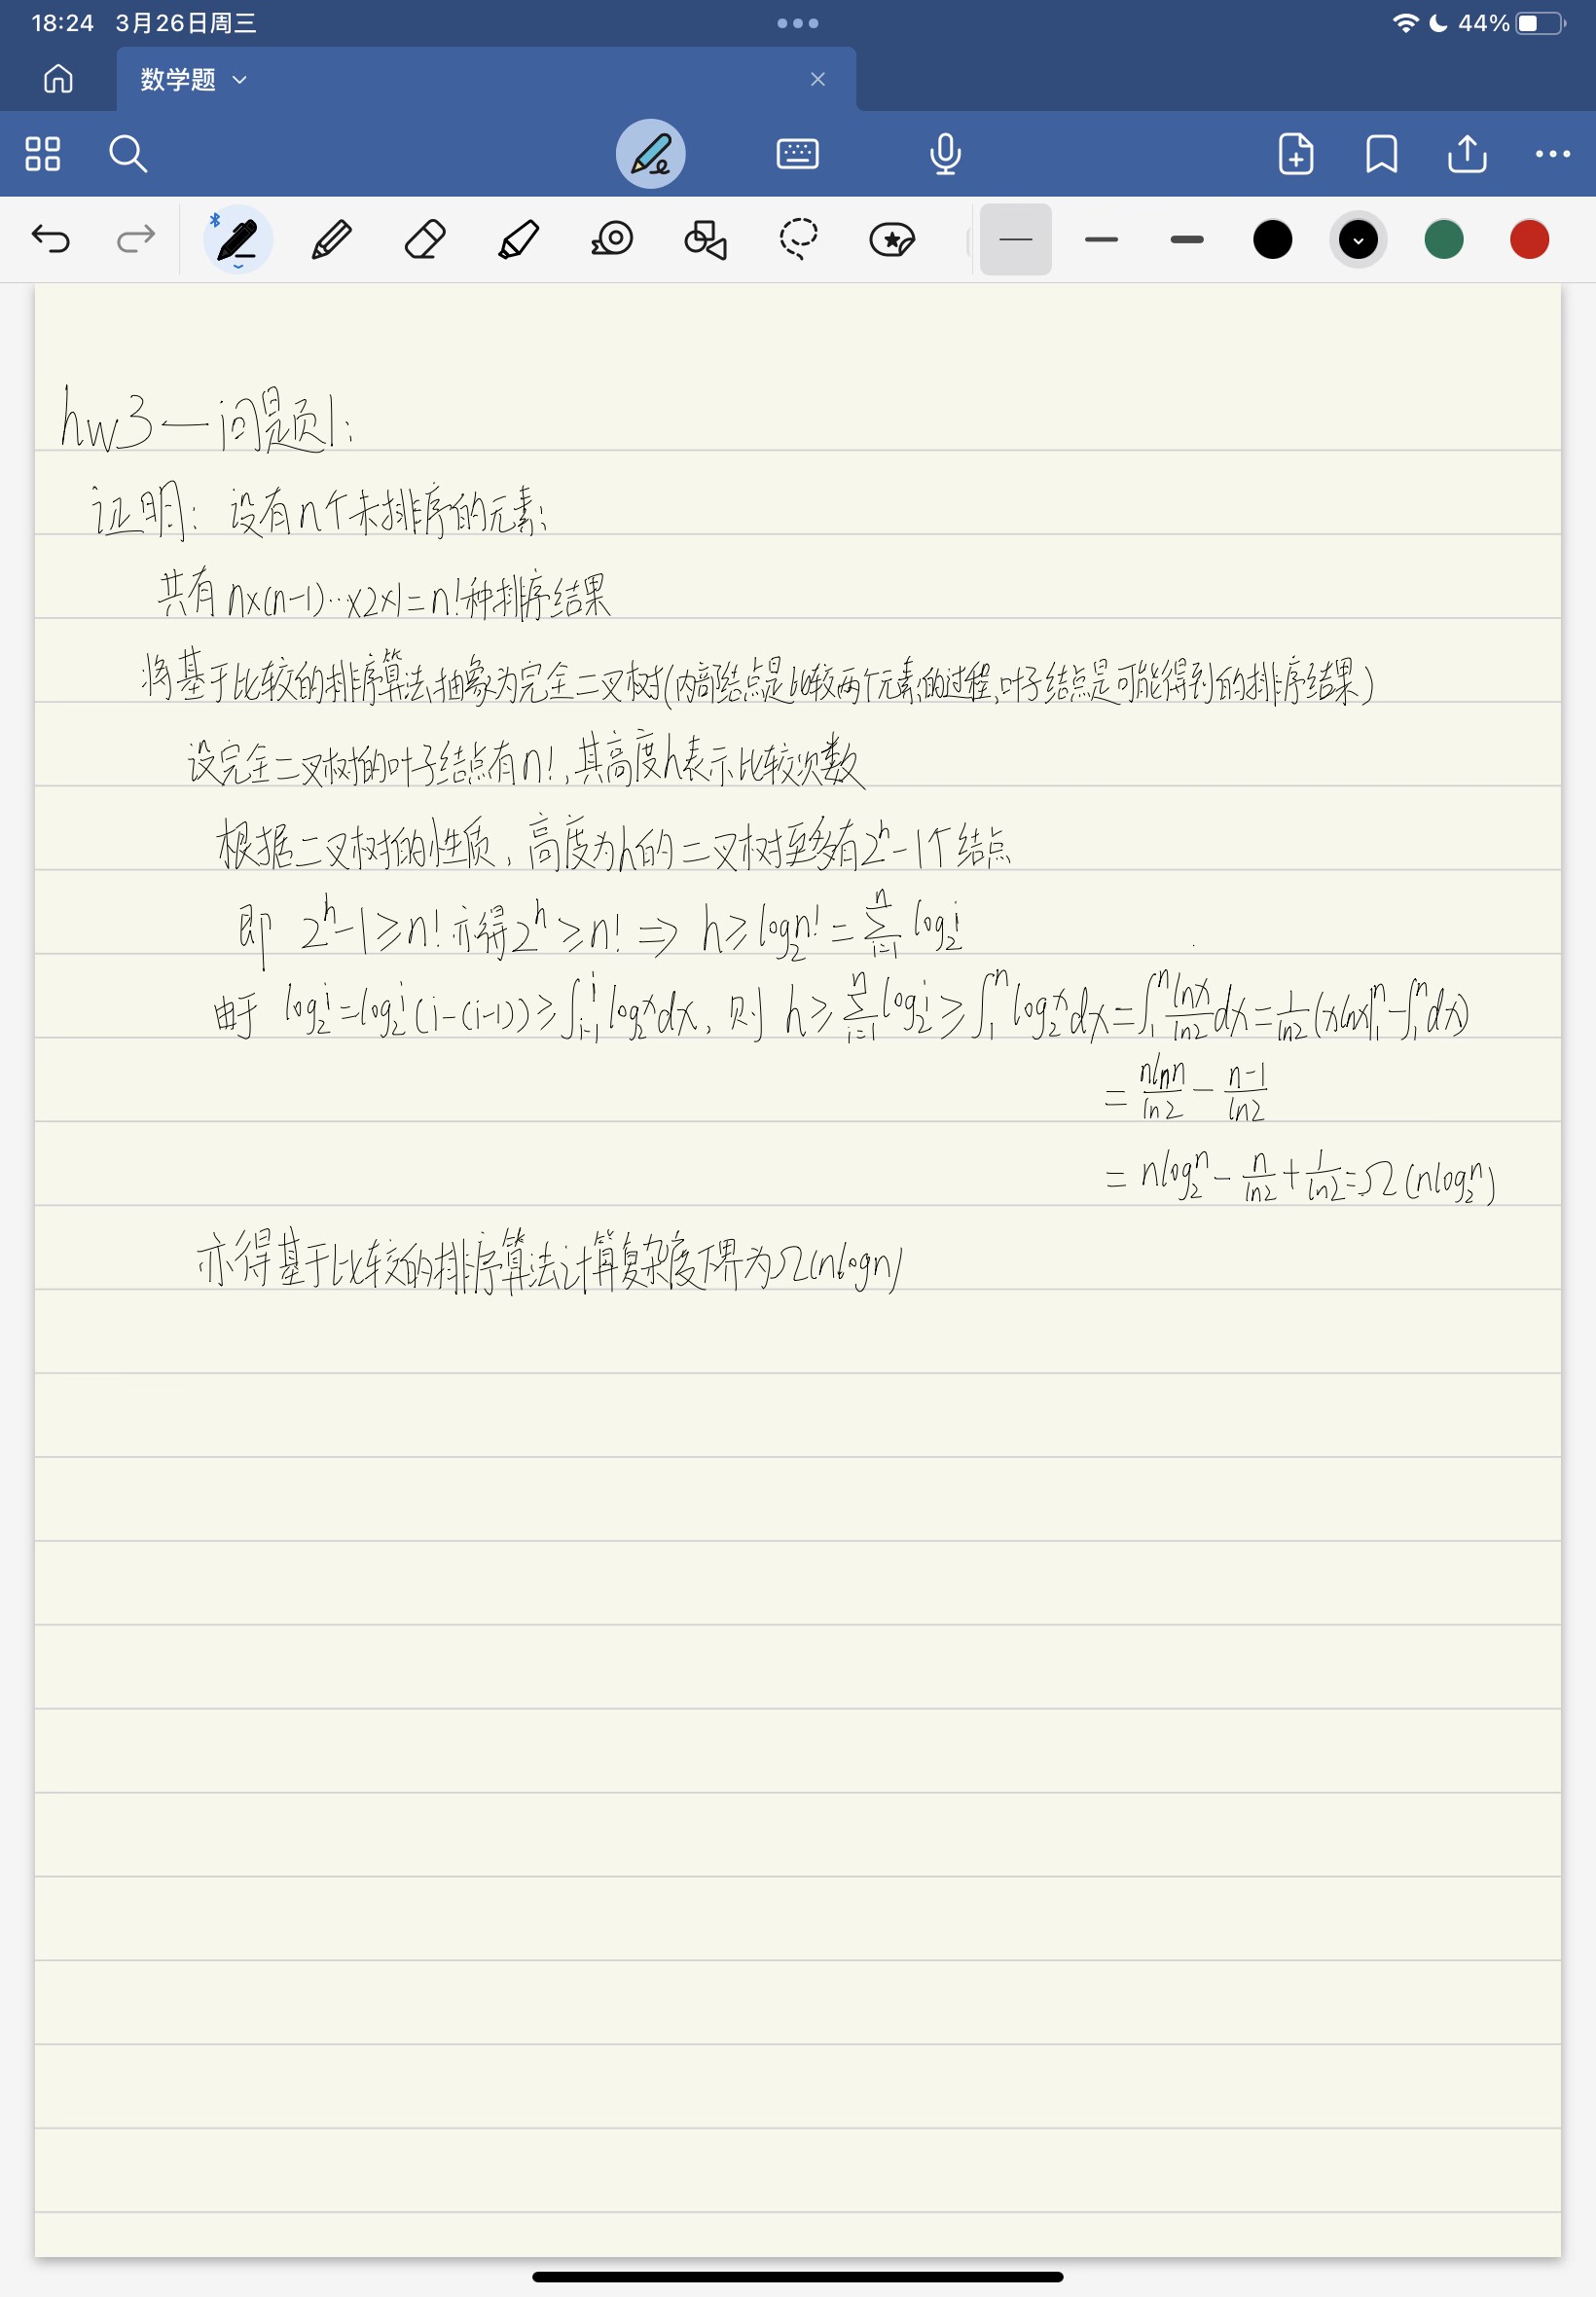 18:24 3月26日周三 44%
数学题
hw3—问题1:
证明: 设有n个未排序的元素;
共有 n×(n-1)…×2×1=n!种排序结果
将基于比较的排序算法抽象为完全二叉树(内部结点是比较两个元素的过程,叶子结点是可能得到的排序结果)
设完全二叉树的叶子结点有n!,其高度h表示比较次数
根据二叉树的性质,高度为h的二叉树至多有2^h-1个结点
即 2^h-1≥n! 亦得2^h≥n! ⇒ h≥log₂n! = ∑_{i=1}^{n} log₂i
由于 log₂i=log₂i(i-(i-1))≥∫_{i-1}^{i} log₂x dx, 则 h≥∑_{i=1}^{n} log₂i≥∫_1^n log₂x dx=∫_1^n lnx/ln2 dx=1/ln2(xlnx|_1^n-∫_1^n dx)
= nlnn/ln2 - n-1/ln2
= nlog₂n - n/ln2 + 1/ln2=Ω(nlog₂n)
亦得基于比较的排序算法计算复杂度下界为Ω(nlogn)